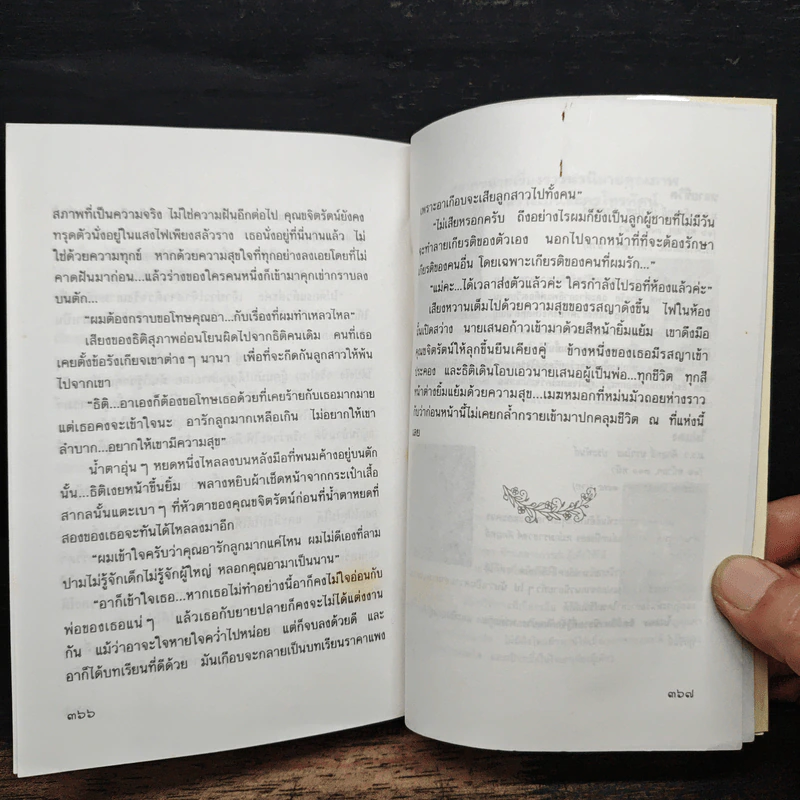 สภาพที่เป็นความจริง ไม่ใช่ความฝันอีกต่อไป คุณขจิตรัตน์ยังคง
ทรุดตัวนั่งอยู่ในแสงไฟเพียงสลัวราง เธอนั่งอยู่ที่นี่นานแล้ว ไม่
ใช่ด้วยความทุกข์ หากด้วยความสุขใจที่ทุกอย่างลงเอยโดยที่ไม่
คาดฝันมาก่อน...แล้วร่างของใครคนหนึ่งก็เข้ามาคุกเข่ากราบลง
บนตัก...
“ผมต้องกราบขอโทษคุณอา...กับเรื่องที่ผมทำเหลวไหล”
เสียงของธิติสุภาพอ่อนโยนผิดไปจากธิติคนเดิม คนที่เธอ
เคยตั้งข้อรังเกียจเขาต่างๆ นานา เพื่อที่จะกีดกันลูกสาวให้พ้น
ไปจากเขา
“ธิติ...อาเองก็ต้องขอโทษเธอด้วยที่เคยร้ายกับเธอมากมาย
แต่เธอคงจะเข้าใจนะ อารักลูกมากเหลือเกิน ไม่อยากให้เขา
ลำบาก...อยากให้เขามีความสุข”
น้ำตาอุ่นๆ หยดหนึ่งไหลลงบนหลังมือที่พนมค้างอยู่บนตัก
นั้น...ธิติเงยหน้าขึ้นยิ้ม พลางหยิบผ้าเช็ดหน้าจากกระเป๋าเสื้อ
สากลนั้นแตะเบาๆ ที่หัวตาของคุณขจิตรัตน์ก่อนที่น้ำตาหยดที่
สองของเธอจะทันได้ไหลลงมาอีก
“ผมเข้าใจครับว่าคุณอารักลูกมากแค่ไหน ผมไม่ดีเองที่ลาม
ปามไม่รู้จักเด็กไม่รู้จักผู้ใหญ่ หลอกคุณอามาเป็นนาน”
“อาก็เข้าใจเธอ...หากเธอไม่ทำอย่างนี้อาก็คงไม่ใจอ่อนกับ
พ่อของเธอแน่ๆ แล้วเธอกับยายปลายก็คงจะไม่ได้แต่งงาน
กัน แม้ว่าอาจะใจหายใจคว่ำไปหน่อย แต่ก็จบลงด้วยดี และ
อาก็ได้บทเรียนที่ดีด้วย มันเกือบจะกลายเป็นบทเรียนราคาแพง
๓๖๖
เพราะอาเกือบจะเสียลูกสาวไปทั้งคน”
“ไม่เสียหรอกครับ ถึงอย่างไรผมก็ยังเป็นลูกผู้ชายที่ไม่มีวัน
จะทำลายเกียรติของตัวเอง นอกไปจากหน้าที่ที่จะต้องรักษา
เกียรติของคนอื่น โดยเฉพาะเกียรติของคนที่ผมรัก...”
“แม่คะ...ได้เวลาส่งตัวแล้วค่ะ ใครกำลังไปรอที่ห้องแล้วค่ะ”
เสียงหวานเต็มไปด้วยความสุขของรสญาดังขึ้น ไฟในห้อง
ซึ่งเปิดสว่าง นายเสนอก้าวเข้ามาด้วยสีหน้ายิ้มแย้ม เขาดึงมือ
คุณขจิตรัตน์ให้ลุกขึ้นยืนเคียงคู่ ข้างหนึ่งของเธอมีรสญาเข้า
ประคอง และธิติเดินโอบเอวนายเสนอผู้เป็นพ่อ...ทุกชีวิต ทุกสี
หน้าต่างยิ้มแย้มด้วยความสุข...เมฆหมอกที่หม่นมัวถอยห่างราว
กับว่าก่อนหน้านี้ไม่เคยกล้ำกรายเข้ามาปกคลุมชีวิต ณ ที่แห่งนี้
เลย
๓๖๗